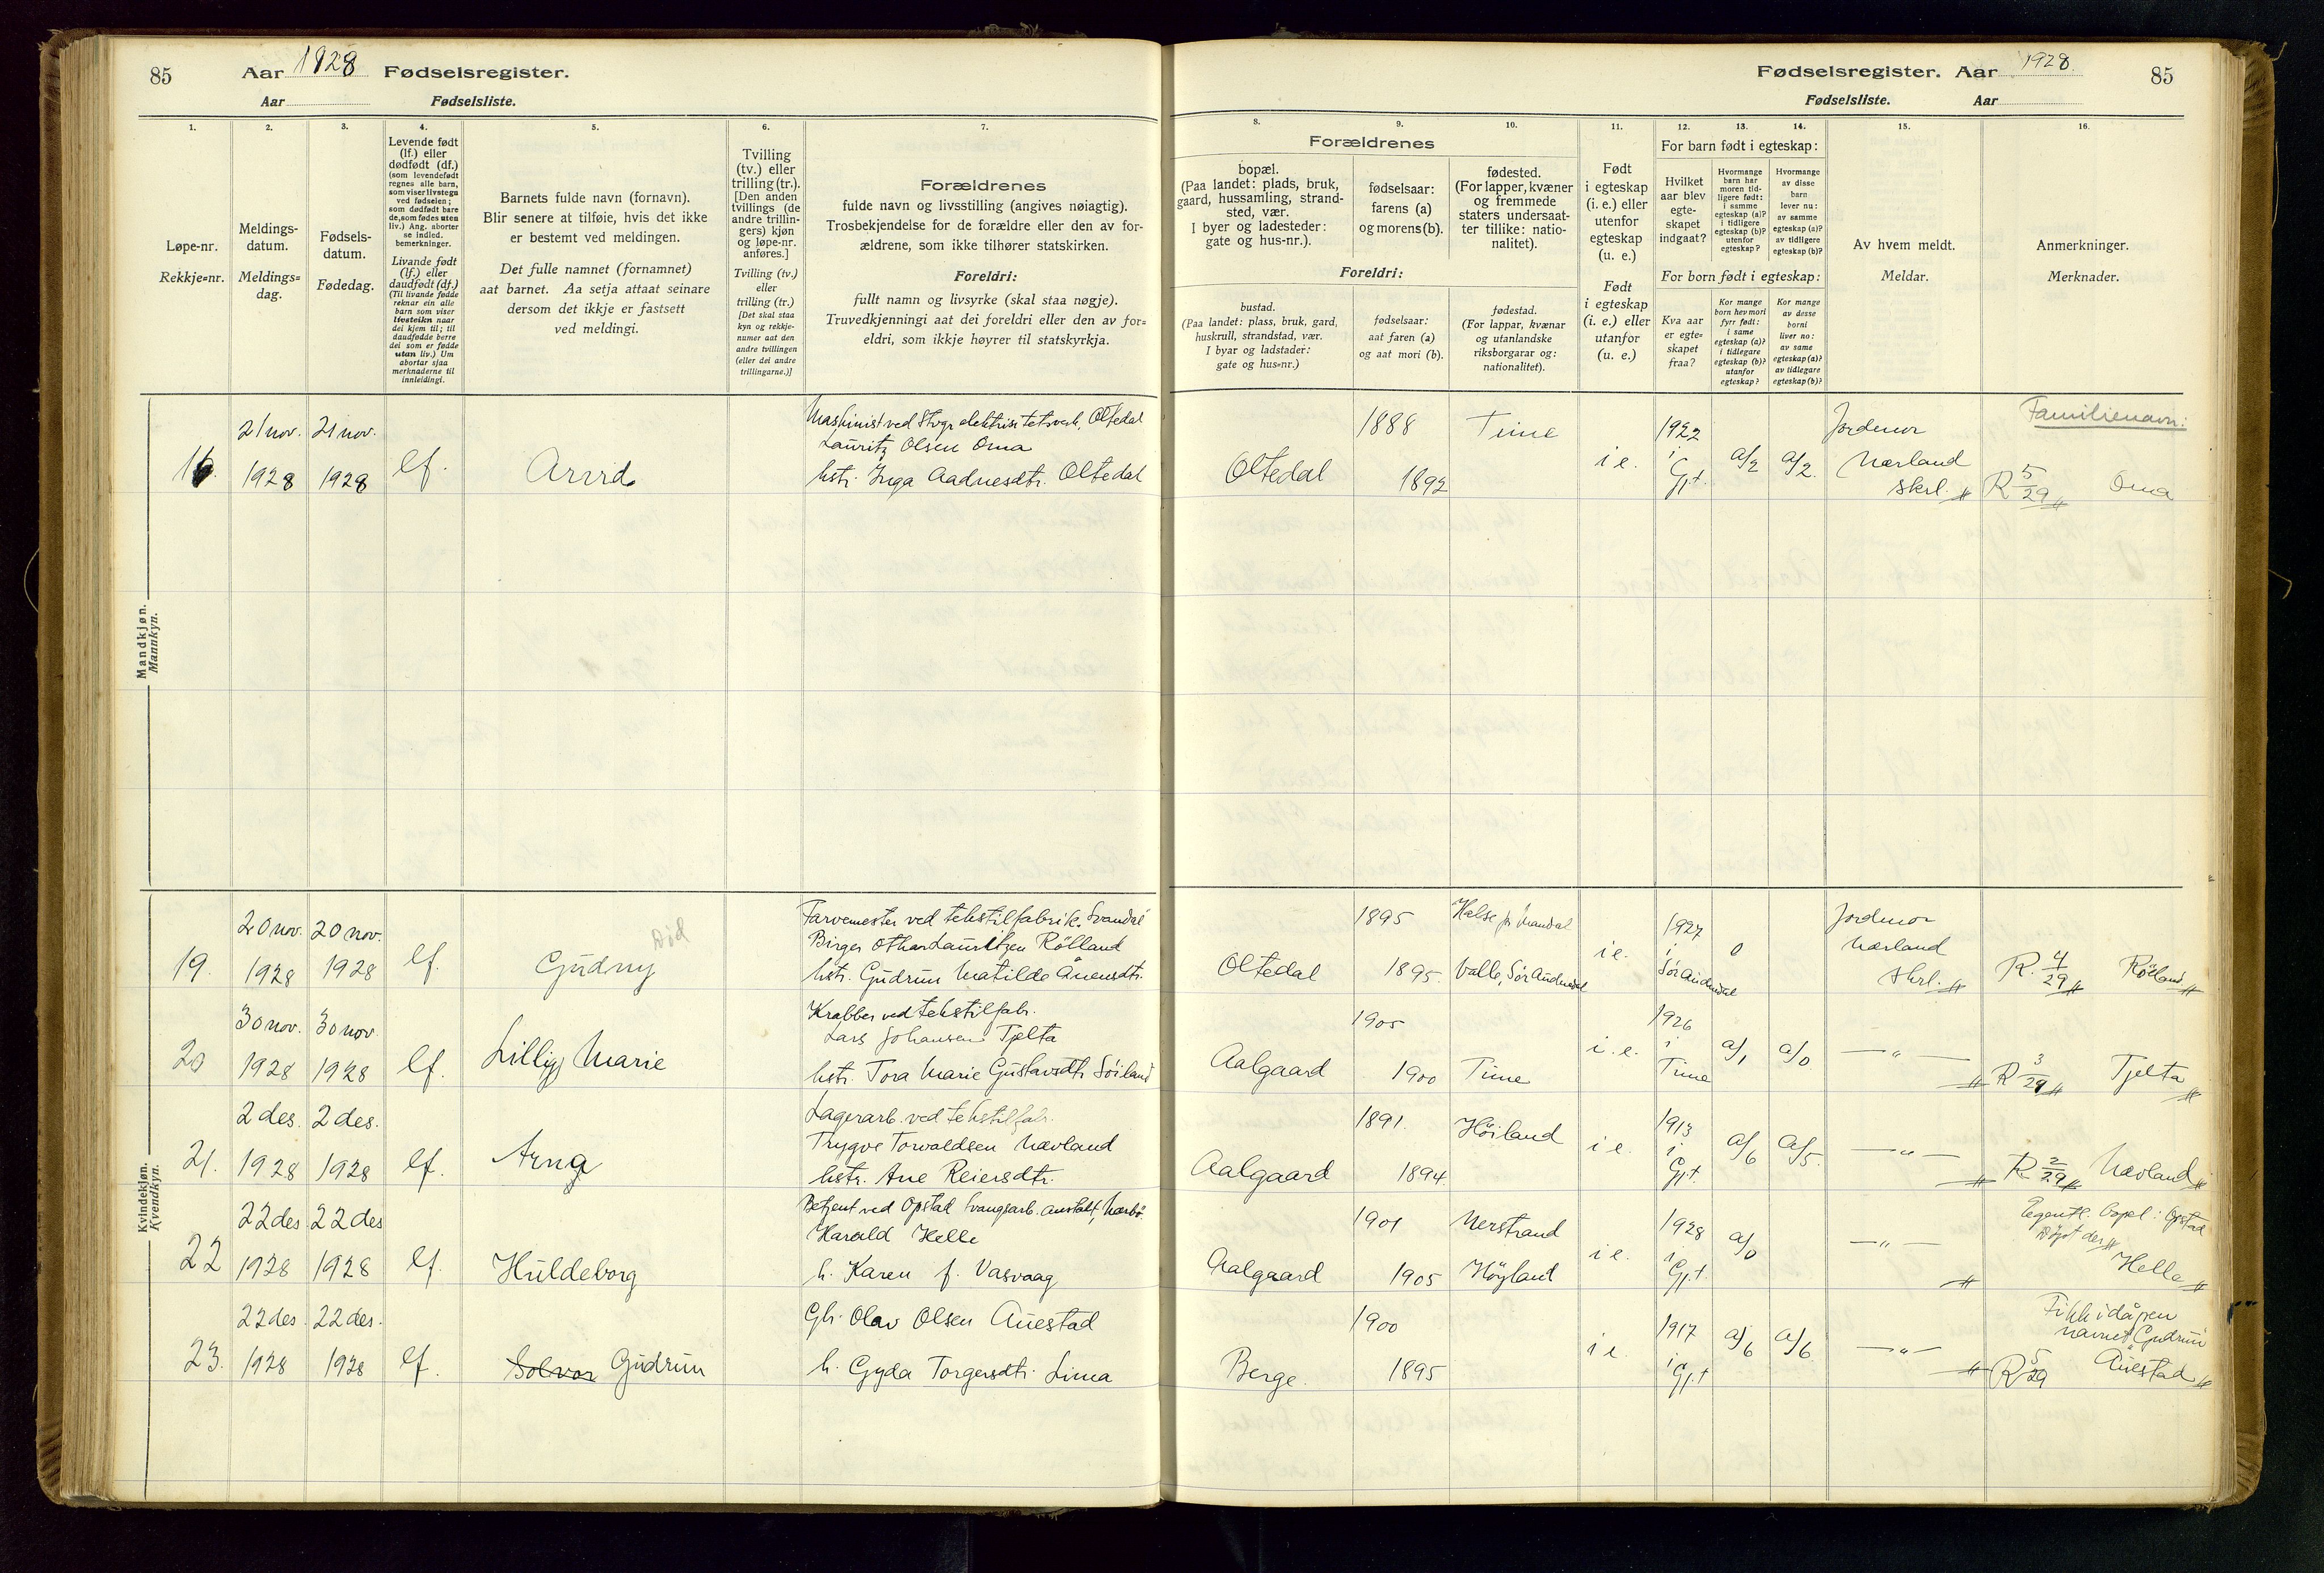 85 Aar 1928 Fødselsregister.
Aar Fødselsliste.
Fødselsregister. Aar 1928. 85
Fødselsliste. Aar
1. 2. 3. 4. 5. 6. 7.
Løpe-nr.
Rekkje-nr.
Meldings-
datum.
Meldings-
dag.
Fødsels-
datum.
Fødedag.
Levende født
(lf.) eller
dødfødt (df.)
(som levendefødt
regnes alle barn,
som viser livstegn
ved fødselen;
som dødfødt bare
de, som fødes uten
liv.) Ang. aborter
se indled.
bemerkninger.
Livande født
(lf.) eller
daudfødt (df.)
(Til livande fødde
reknar ein alle
barn som viser
livsteikn naar
dei kjem til; til
daudfødde berre
dei som er fødde
utan liv.) Um
abortar sjaa
merknaderne til
innleidingi.
Barnets fulde navn (fornavn).
Blir senere at tilføie, hvis det ikke
er bestemt ved meldingen.
Det fulle namnet (fornamnet)
aat barnet. Aa setja attaat seinare
dersom det ikkje er fastsett
ved meldingi.
Tvilling
(tv.) eller
trilling (tr.).
[Den anden
tvillings (de
andre trillin-
gers) kjøn
og løpe-nr.
anføres.]
Tvilling (tv.)
eller
trilling (tr.)
[Det skal staa
kyn og rekkje-
numer aat den
andre tvillingen
(eller dei andre
trillingarne.)]
Forældrenes
fulde navn og livsstilling (angives nøiagtig).
Trosbekjendelse for de forældre eller den av for-
ældrene, som ikke tilhører statskirken.
Foreldri:
fullt namn og livsyrke (skal staa nøgje).
Truvedkjenningi aat dei foreldri eller den av for-
eldri, som ikkje høyrer til statskyrkja.
8. 9. 10. 11. 12. 13. 14. 15. 16.
Forældrenes
bopæl.
(Paa landet: plads, bruk,
gaard, hussamling, strand-
sted, vær.
I byer og ladesteder:
gate og hus-nr.).
fødselsaar:
farens (a)
og morens (b).
fødested.
(For lapper, kvæner
og fremmede
staters undersaat-
ter tillike: natio-
nalitet).
Foreldri:
bustad.
(Paa landet: plass, bruk, gard,
huskrull, strandstad, vær.
I byar og ladstader:
gate og hus-nr.)
fødselsaar:
aat faren (a)
og aat mori (b).
fødestad.
(For lappar, kvænar
og utanlandske
riksborgarar og:
nationalitet).
Født
i egteskap
(i. e.) eller
utenfor
egteskap
(u. e.)
Født
i egteskap
(i. e.) eller
utanfor
(u. e.)
For barn født i egteskap:
Hvilket
aar blev
egte-
skapet
indgaat?
Hvormange
barn har
moren tid-
ligere født:
i samme
egteskap (a)?
i tidligere
egteskap (b)?
utenfor
egteskap?
Hvormange
av disse
barn
lever nu:
av samme
egteskap (a)?
av tidligere
egteskap (b)?
For born født i egteskap:
Kva aar
er egte-
skapet
fraa?
Kor mange
born hev mori
fyrr født:
i same
egteskap (a)?
i tidlegare
egteskap (b)?
utanfor
egteskap?
Kor mange
av desse
borni
liver no:
av same
egteskap (a)?
av tidlegare
egteskap (b)?
Av hvem meldt.
Meldar.
Anmerkninger.
Merknader.
Mandkjøn.
Mannkyn.
16. 21 nov. 1928 21 nov. 1928 lf. Arvid
Maskinist ved Stvgr elektrisitetsverk, Oltedal
Lauritz Olsen Oma
hstr. Inga Aadnesdtr. Oltedal
Oltedal 1888 1892 Time i e. 1922 i Gjt. a/2 a/2.
Jordmor
Nærland
skrl.
Familienavn:
R 5/29 Oma
Kvindekjøn.
Kvendkyn.
19. 20 nov. 1928 20 nov. 1928 lf. Gudny Død
Farvemester ved tekstilfabrik, Svandal
Birger Othar Lauritzen Rölland
hstr. Gudrun Matilde Ånensdtr.
Oltedal 1895 1895. Halse pr Mandal Valle, Sør Audnedal i e. 1927 i Sør Audnedal 0
Jordmor
Nærland
skrl.
R. 4/29 Rölland
20 30 nov. 1928 30 nov. 1928 lf. Lilly Marie
Krabber ved tekstilfabr.
Lars Johansen Tjelta
hstr. Tora Marie Gustavsdtr Söiland
Aalgaard 1905 1900 Time i. e. 1926 i Time a/1 a/0 — „ —
R 3/29 Tjelta
21. 2 des. 1928 2 des. 1928 lf. Arna
Lagerarb. ved tekstilfabr.
Trygve Torvaldsen Nævland
hstr. Ane Reiersdtr.
Aalgaard 1891. 1894. Höiland i e. 1913 i Gjt. a/6 a/5. — „ —
R 2/29 Nævland
22 22 des. 1928 22 des 1928 lf. Huldeborg
Betjent ved Opstad tvangsarb. anstalt, Nærbö.
Harald Helle
h. Karen f. Vasvaag
Aalgaard 1901 1905 Nerstrand Höyland i e. 1928 i Gjt. a/0 — „ —
Egentl. bopel: Opstad
Döpt der
Helle
23. 22 des. 1928 22 des. 1928 lf. Solvor Gudrun
Gb. Olav Olsen Auestad
h. Gyda Torgersdtr. Lima
Berge. 1900 1895 i e. 1917 i Gjt a/6 a/6. — „ —
Fikk i dåpen
navnet "Gudrun"
R 5/29 Auestad